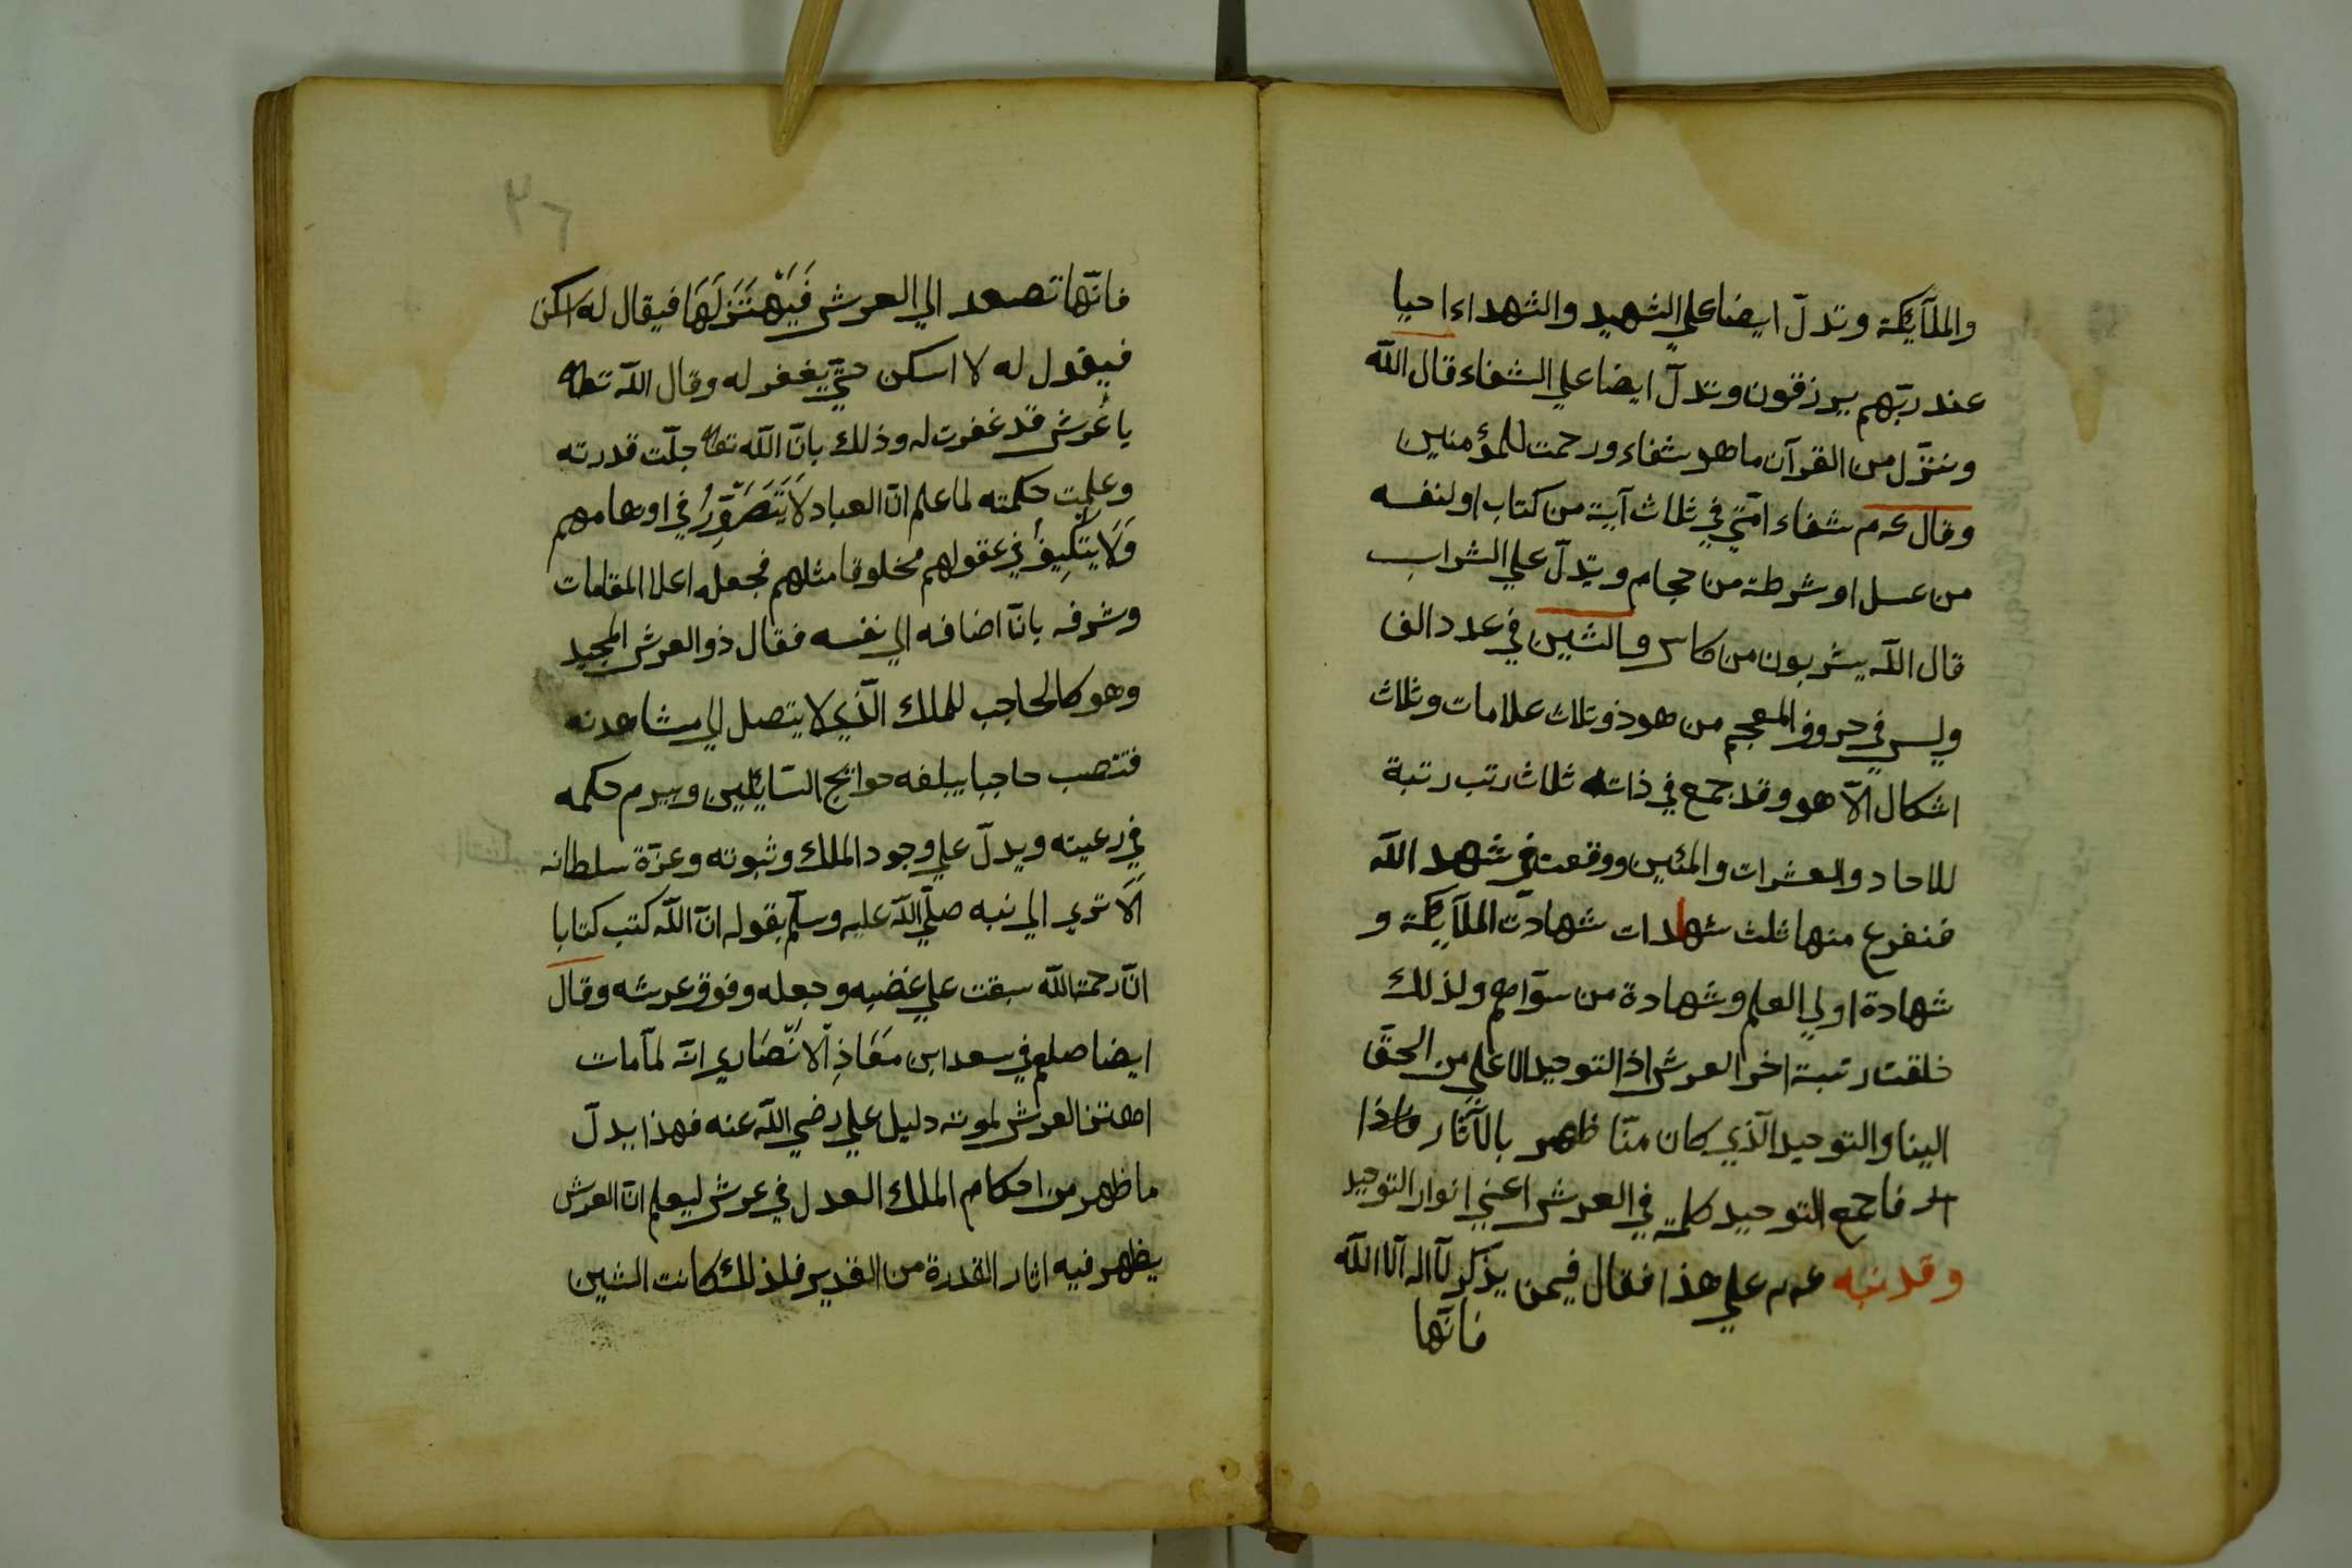 والملآئكة وتدلّ ايضا علي الشهيد والشهداء احيا
عند ربّهم يرزقون وتدلّ ايضا علي الشفاء قال الله
وننزّل من القرآن ما هو شفاء ورحمت للمؤمنين
وقال عم شفاء امّتي في ثلاث آية من كتاب او لنفسه
من عسل او شرطة من حجام ويدلّ علي الشراب
قال الله يشربون من كاس والشين في عدد الف
وليس في حروف المعجم من هو ذو ثلاث علامات وثلاث
اشكال الّا هو وقد جمع في ذاته ثلاث رتب رتبة
للاحاد والعشرات والمئين ووقعت في شهد الله
فنفرع منها ثلث شهادات شهادت الملآئكة و
شهادة اولي العلم وشهادة من سوّاهم ولذلك
خلقت رتبة اخر العرش اذ التوحيد الاعلي من الحقّ
الينا والتوحيد الّذي كان منّا ظهر بالآثار فاذا
فاجمع التوحيد كلمة في العرش اعني انوار التوحيد
وقد نبه عم علي هذا فقال فيمن يذكر لآ اله الّا الله
فانّها
٢٦
فانّها تصعد الي العرش فَيَهْتَزّ لَهَا فيقال له اسكن
فيقول له لا اسكن حتّي يغفر له وقال الله تعا
يا عرش قد غفرت له وذلك بانّ الله تعا جلّت قدرته
وعلمت حكمته لما علم انّ العباد لَا يَتَصَوَّرُ في اوهامهم
وَلَا يتكيف في عقولهم مخلوقا مثلهم فجعله اعلا المقامات
وشرفه بانّ اضافه الي نفسه فقال ذو العرش المجيد
وهو كالحاجب للملك الّذي لا يتصل الي مشاهدته
فتنصب حاجبا يبلغه حوائج السّائلين ويبرم حكمه
في رعيته ويدلّ علي وجود الملك وثبوته وعزّة سلطانه
الَا تري الي نبه صلّي الله عليه وسلّم بقوله انّ الله كتب كتابا
انّ رحمة الله سبقت علي غضبه وجعله وفوق عرشه وقال
ايضا صلعم في سعد ابن مَعَاذِ الْاَنْصَاري انّه لمّا مات
اهتز العرش لموته دليل علي رضي الله عنه فهذا يدلّ
ما ظهر من احكام الملك العدل في عرش ليعلم انّ العرش
يظهر فيه اثار القدرة من القدير فلذلك كانت الشين